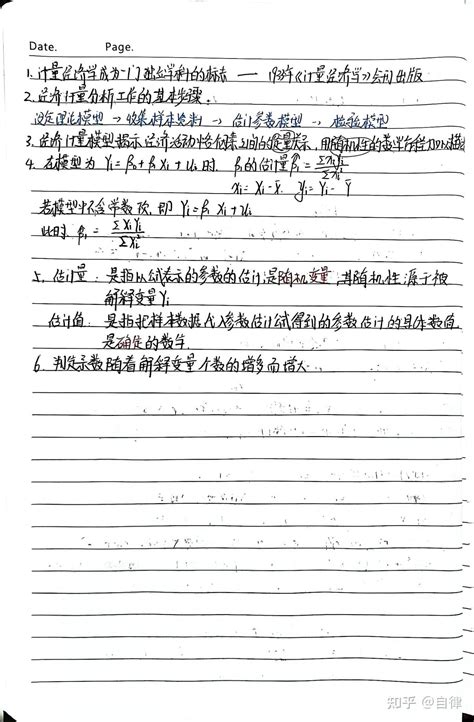 Date. Page.
1. 计量经济学成为一门独立学科的标志 —— 1933年《计量经济学》会刊出版
2. 经济计量分析工作的基本步骤.
设定理论模型 → 收集样本资料 → 估计参数模型 → 检验模型
3. 经济计量模型揭示经济活动中各个因素之间的定量关系, 用随机性的数学方程加以描述
4. 在模型为 Yi = β0 + β1 Xi + ui 时. β1的估计量 β̂1 = Σxiyi / Σxi²
xi = Xi - X̄. yi = Yi - Ȳ
若模型中不含常数项, 即 Yi = β1 Xi + ui
此时 β̂1 = ΣXiYi / ΣXi²
5. 估计量: 是指以公式表示的参数的估计, 是随机变量, 其随机性源于被
解释变量Yi
估计值: 是指把样本数据代入参数估计公式得到的参数估计的具体数值,
是确定的数字.
6. 判定系数随着解释变量个数的增多而增大.
知乎 @自律